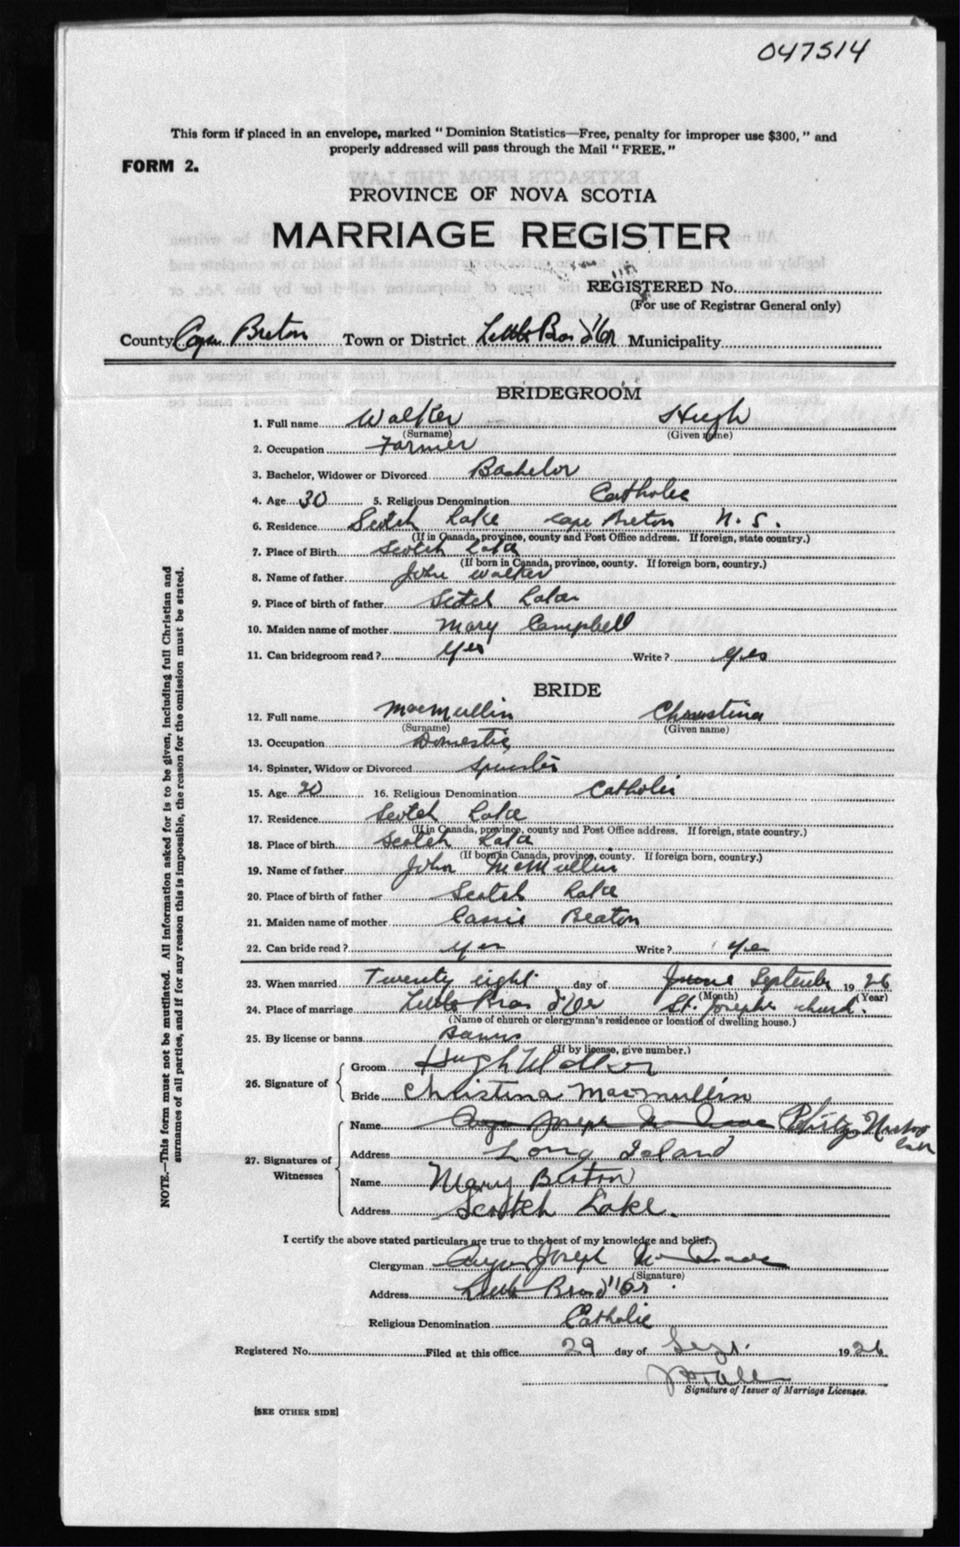 047514
This form if placed in an envelope, marked " Dominion Statistics—Free, penalty for improper use $300, " and
properly addressed will pass through the Mail "FREE."
FORM 2.
PROVINCE OF NOVA SCOTIA
MARRIAGE REGISTER
REGISTERED No.
(For use of Registrar General only)
County Cape Breton Town or District Little Bras d'Or Municipality
BRIDEGROOM
1. Full name Walker Hugh
(Surname) (Given name)
2. Occupation Farmer
3. Bachelor, Widower or Divorced Bachelor
4. Age 30 5. Religious Denomination Catholic
6. Residence Scotch Lake Cape Breton N. S.
(If in Canada, province, county and Post Office address. If foreign, state country.)
7. Place of Birth Scotch Lake
(If born in Canada, province, county. If foreign born, country.)
8. Name of father John Walker
9. Place of birth of father Scotch Lake
10. Maiden name of mother Mary Campbell
11. Can bridegroom read? Yes Write? Yes
BRIDE
12. Full name MacMullin Christina
(Surname) (Given name)
13. Occupation Domestic
14. Spinster, Widow or Divorced Spinster
15. Age 20 16. Religious Denomination Catholic
17. Residence Scotch Lake
(If in Canada, province, county and Post Office address. If foreign, state country.)
18. Place of birth Scotch Lake
(If born in Canada, province, county. If foreign born, country.)
19. Name of father John McMullin
20. Place of birth of father Scotch Lake
21. Maiden name of mother Cassie Beaton
22. Can bride read? Yes Write? Yes
23. When married Twenty eight day of June September 1926
(Month) (Year)
24. Place of marriage Little Bras d'Or St. Joseph's church.
(Name of church or clergyman's residence or location of dwelling house.)
25. By license or banns Banns
(If by license, give number.)
26. Signature of Groom Hugh Walker
Bride Christina Macmullin
27. Signatures of Witnesses
Name Angus Joseph
Address Long Island
Name Mary Beaton
Address Scotch Lake.
I certify the above stated particulars are true to the best of my knowledge and belief.
Clergyman Angus Joseph
(Signature)
Address Little Bras d'Or
Religious Denomination Catholic
Registered No. Filed at this office 29 day of Sept. 1926
Signature of Issuer of Marriage Licenses.
[SEE OTHER SIDE]
NOTE.—This form must not be mutilated. All information asked for is to be given, including full Christian and
surnames of all parties, and if for any reason this is impossible, the reason for the omission must be stated.